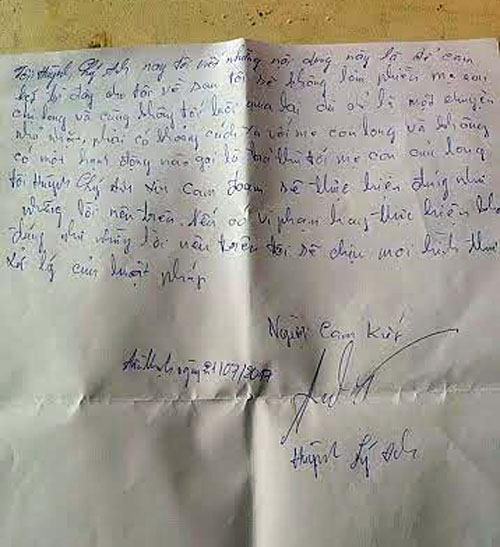 Tôi Huỳnh Lý Anh nay tôi viết những nội dung này là để cam
kết từ đây cho tới về sau tôi sẽ không làm phiền mẹ con
của long và cũng không tới lui qua lại dù chỉ là một chuyện
như nhằm phải có khoảng cách xa với mẹ con long và không
có một hành động nào gọi là trả thù tới mẹ con của long
tôi Huỳnh Lý Anh xin cam đoan sẽ thực hiện đúng như
những lời nêu trên. Nếu có vi phạm hay thực hiện
đúng như những lời nêu trên tôi sẽ chịu mọi hình thức
xử lý của luật pháp
Người Cam Kết
ngày 21/07/2017
Huỳnh Lý Anh